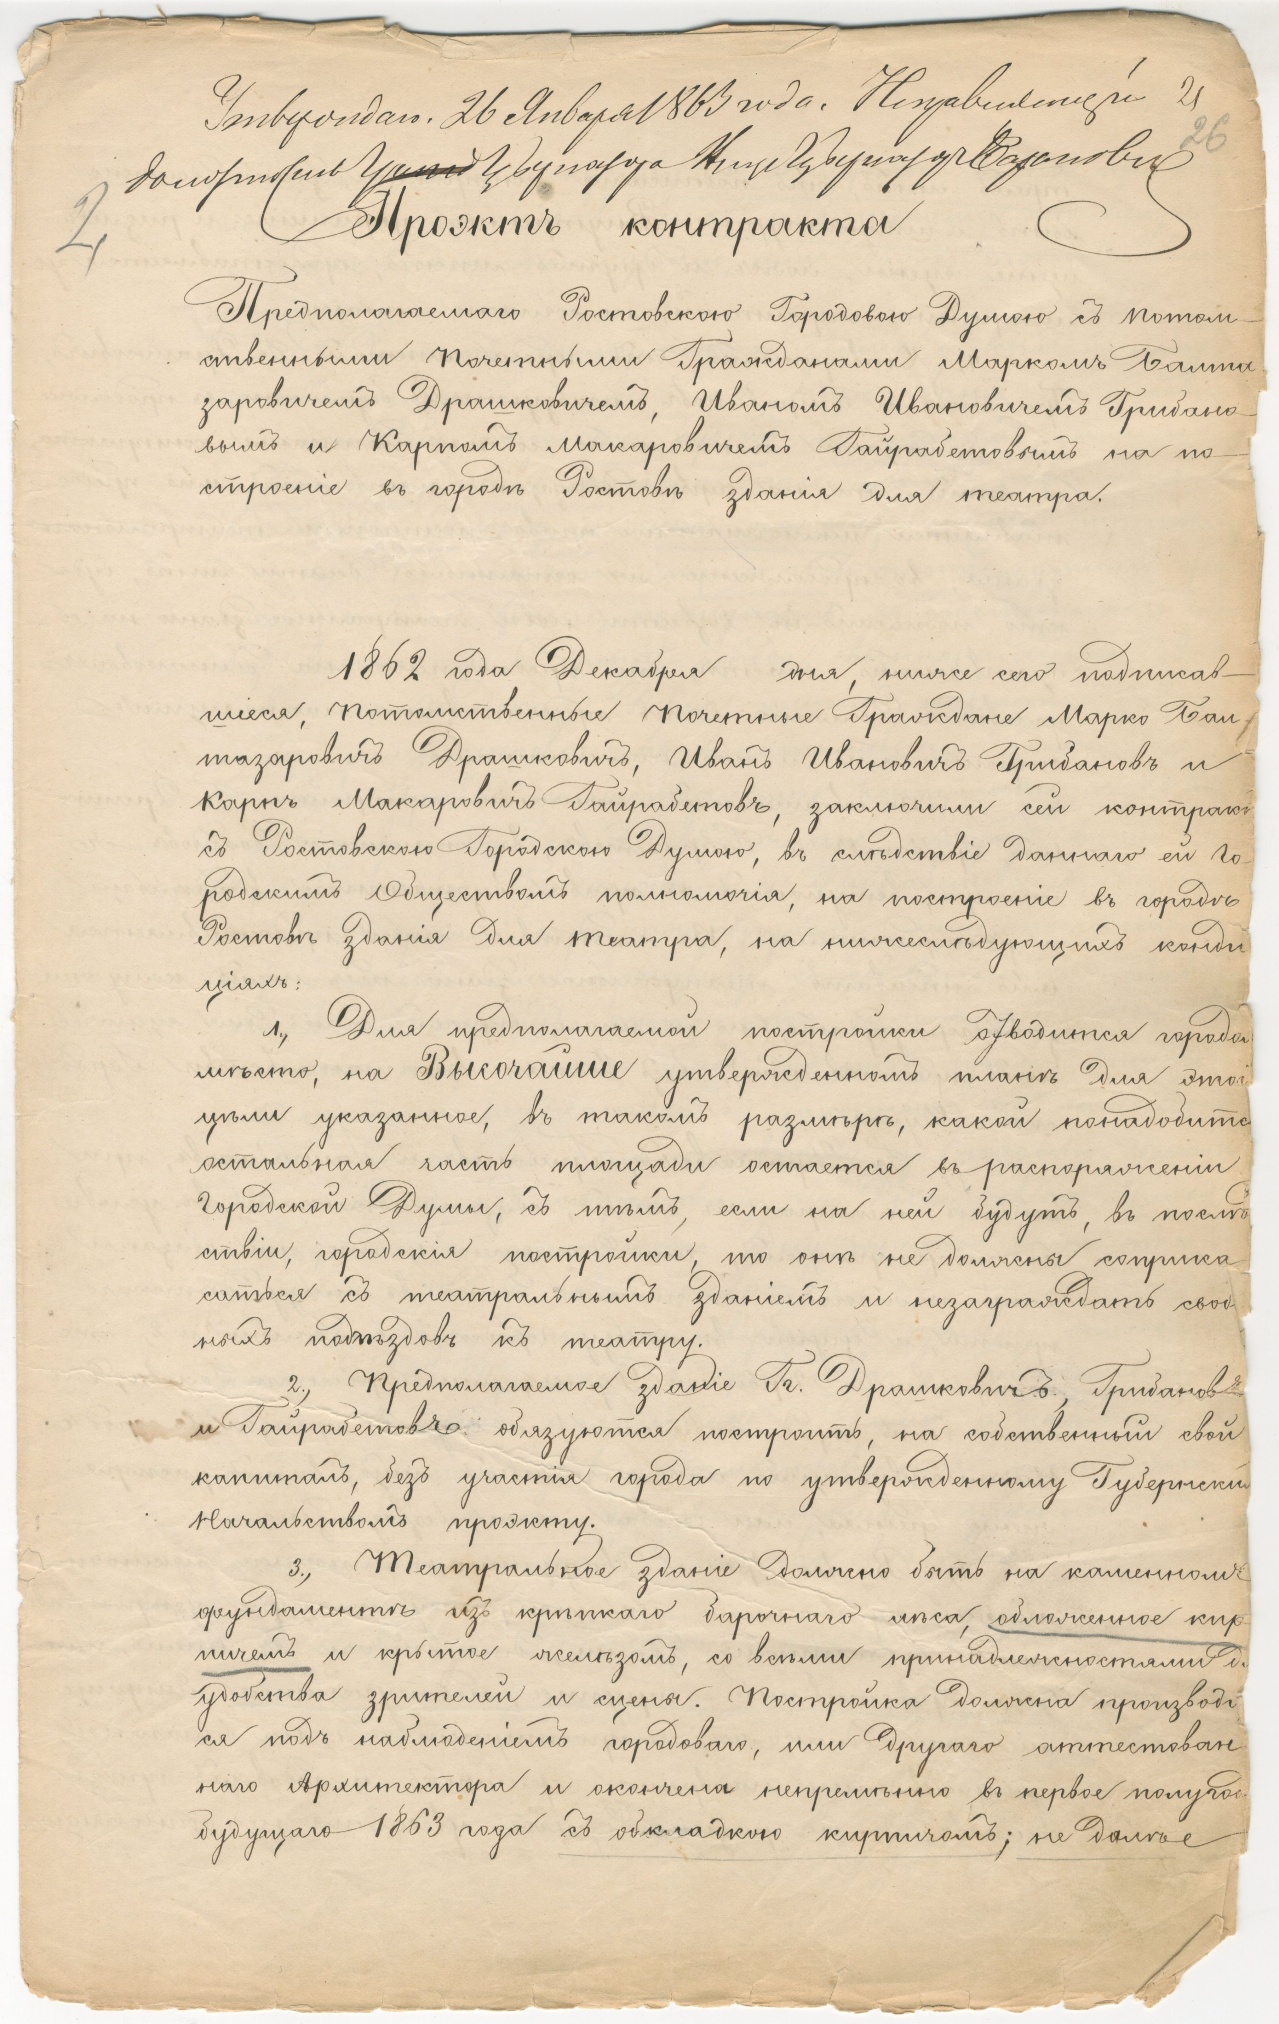 Утверждаю. 26 Января 1863 года. Исправляющій 21
26
должность Губернатора Вице Губернаторъ
2,
Проэктъ контракта
Предполагаемаго Ростовскою Городовою Думою съ потом-
ственными Почетными Гражданами Маркомъ Балта
заровичемъ Драшковичемъ, Иваномъ Ивановичемъ Грибано-
вымъ и Карпомъ Макаровичемъ Гайрабетовымъ на по-
строеніе въ городѣ Ростовѣ зданія для театра.
1862 года Декабря дня, ниже сего подписав-
шіеся, Потомственные Почетные Граждане Марко Бал-
тазаровичъ Драшковичъ, Иванъ Ивановичъ Грибановъ и
Карпъ Макаровичъ Гайрабетовъ, заключили сей контракт
съ Ростовскою Городскою Думою, въ слѣдствіе даннаго ей Го-
родскимъ Обществомъ полномочія, на построеніе въ городѣ
Ростовѣ зданія для театра, на нижеслѣдующихъ конди
ціяхъ:
1., Для предполагаемой постройки отводится городом
мѣсто, на Высочайше утвержденномъ планѣ для этой
цѣли указанное, въ такомъ размѣрѣ, какой понадобится
остальная часть площади остается въ распоряженіи
Городской Думы, съ тѣмъ, если на ней будутъ, въ послѣд
ствіи, городскія постройки, то онѣ не должны соприка
саться съ театральнымъ зданіемъ и незаграждать свобод
ныхъ подъѣздовъ къ театру.
2., Предполагаемое зданіе Гг. Драшковичъ, Грибановъ
и Гайрабетовъ обязуются построить, на собственный свой
капиталъ, безъ участія города по утвержденному Губернским
Начальствомъ проэкту.
3., Театральное зданіе должно быть на каменномъ
фундаментѣ изъ крѣпкаго барочнаго лѣса, обложенное кир
пичемъ и крытое желѣзомъ, со всѣми принадлежностями дл
удобства зрителей и сцены. Постройка должна производит
ся подъ наблюденіемъ городоваго, или другаго аттестован
наго Архитектора и окончена непремѣнно въ первое полугод
будущаго 1863 года съ обкладкою кирпичомъ; не далѣе